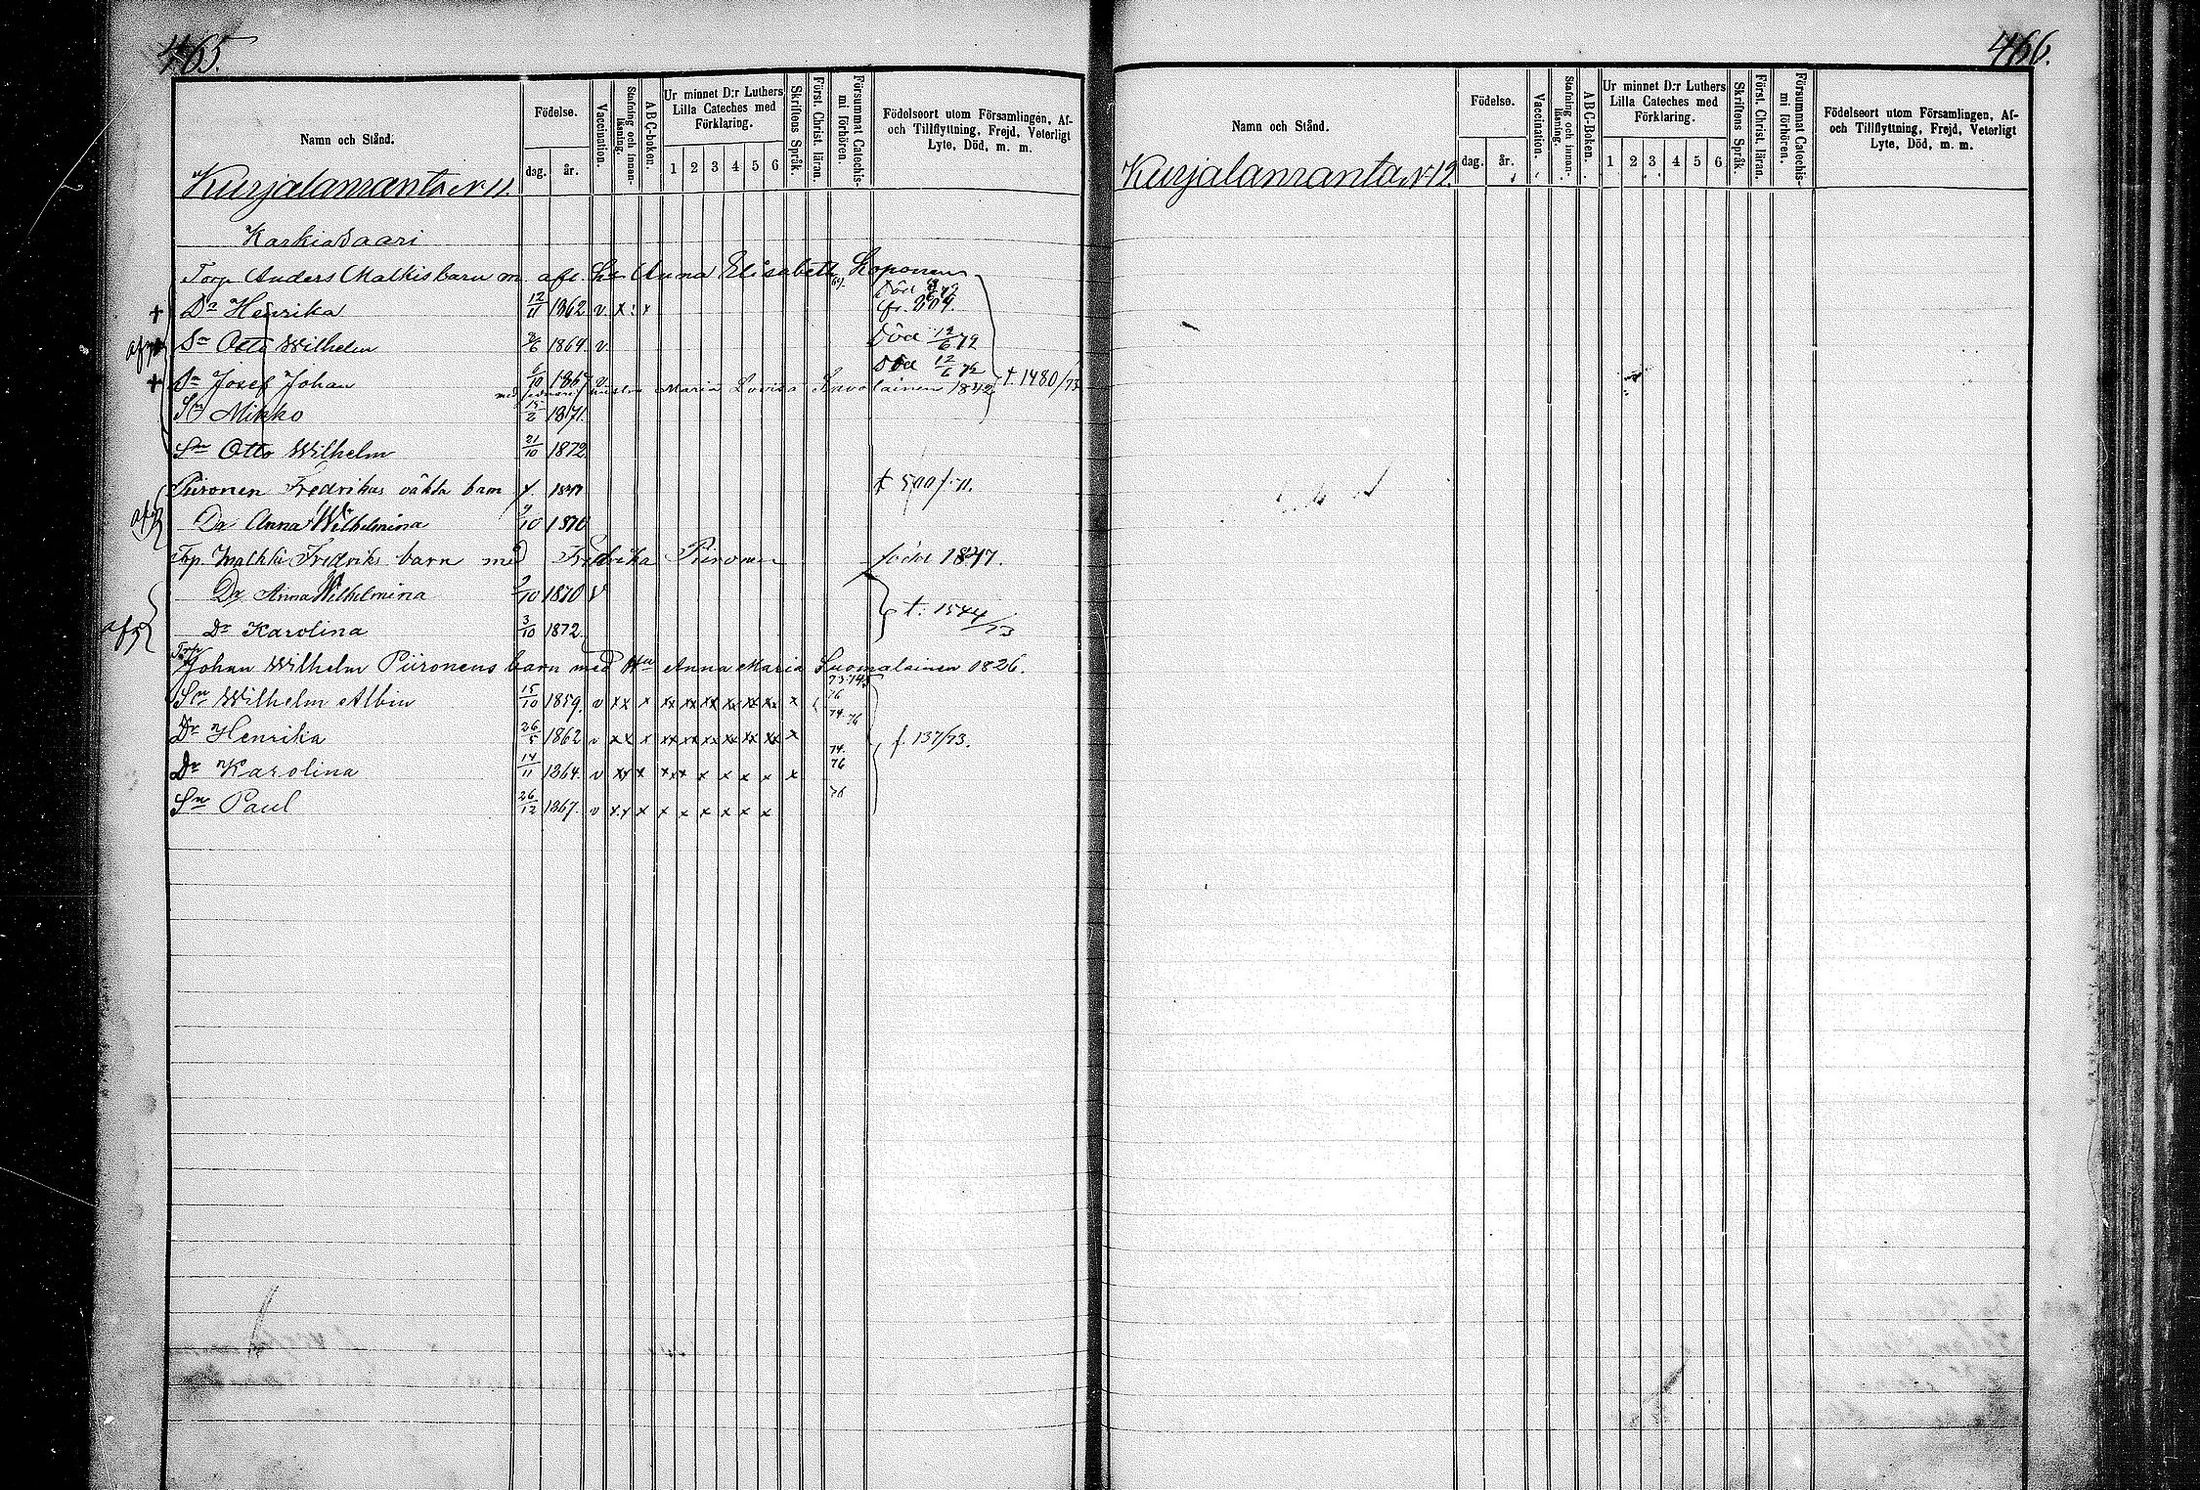 465.
Namn och Stånd.
Födelse.
dag.
år.
Vaccination.
Stafning och innan-läsning.
ABC-boken.
Ur minnet D:r Luthers
Lilla Cateches med
Förklaring.
1 2 3 4 5 6
Skriftens Språk.
Först. Christ. läran.
Försummat Catechis-mi förhören.
Födelseort utom Församlingen, Af-
och Tillflyttning, Frejd, Veterligt
Lyte, Död, m. m.
Kurjalanranta N 11.
Karkiasaari
Torp. Anders Malkis barn m. afl. Hu Anna Elisabeth Koponen
+ Dr Henrika 12/11 1862 v x : x
fr. 309.
Sn Otto Wilhelm 1864 v Död 12/6 72
+ Sn Josef Johan 6/10 1867 v Död 12/6 72
Maria Lovisa Savolainen 1842 t. 1480/73
Sn Mikko 15/2 1871.
Sn Otto Wilhelm 21/10 1872.
Piironen Fredrikas oäkta barn f. 1847 t 500/71.
Dr Anna Wilhelmina 9/10 1870
Torp. Malkki Fredriks barn med Fredrika Piironen född 1847.
Dr Anna Wilhelmina 9/10 1870 v
t. 1544/73
Dr Karolina 3/10 1872.
Torp
Johan Wilhelm Piironens barn med Hu Anna Maria Suomalainen 1826.
Sn Wilhelm Albin 15/10 1859. v xx x xx xx xx xx xx xx x 76
Dr Henrika 26/5 1862 v xx x xx xx xx xx xx xx x 74. 76 f. 137/73.
Dr Karolina 14/11 1864. v xx x xx x x x x x x 74. 76
Sn Paul 26/12 1867. v x x x x x x x x x 76
466.
Namn och Stånd.
Födelse.
dag.
år.
Vaccination.
Stafning och innan-läsning.
ABC-Boken.
Ur minnet D:r Luthers
Lilla Cateches med
Förklaring.
1 2 3 4 5 6
Skriftens Språk.
Först. Christ. läran.
Försummat Catechis-mi förhören.
Födelseort utom Församlingen, Af-
och Tillflyttning, Frejd, Veterligt
Lyte, Död, m. m.
Kurjalanranta N 12.